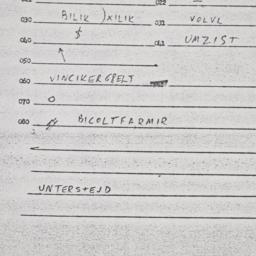 022
030 BILIK XILIK 031 VOLVL
040 $ 041 UMZIST
050
060 VINCIKERGBELT
070 O
080 BICOLTFARMIR
UNTERSTEJD